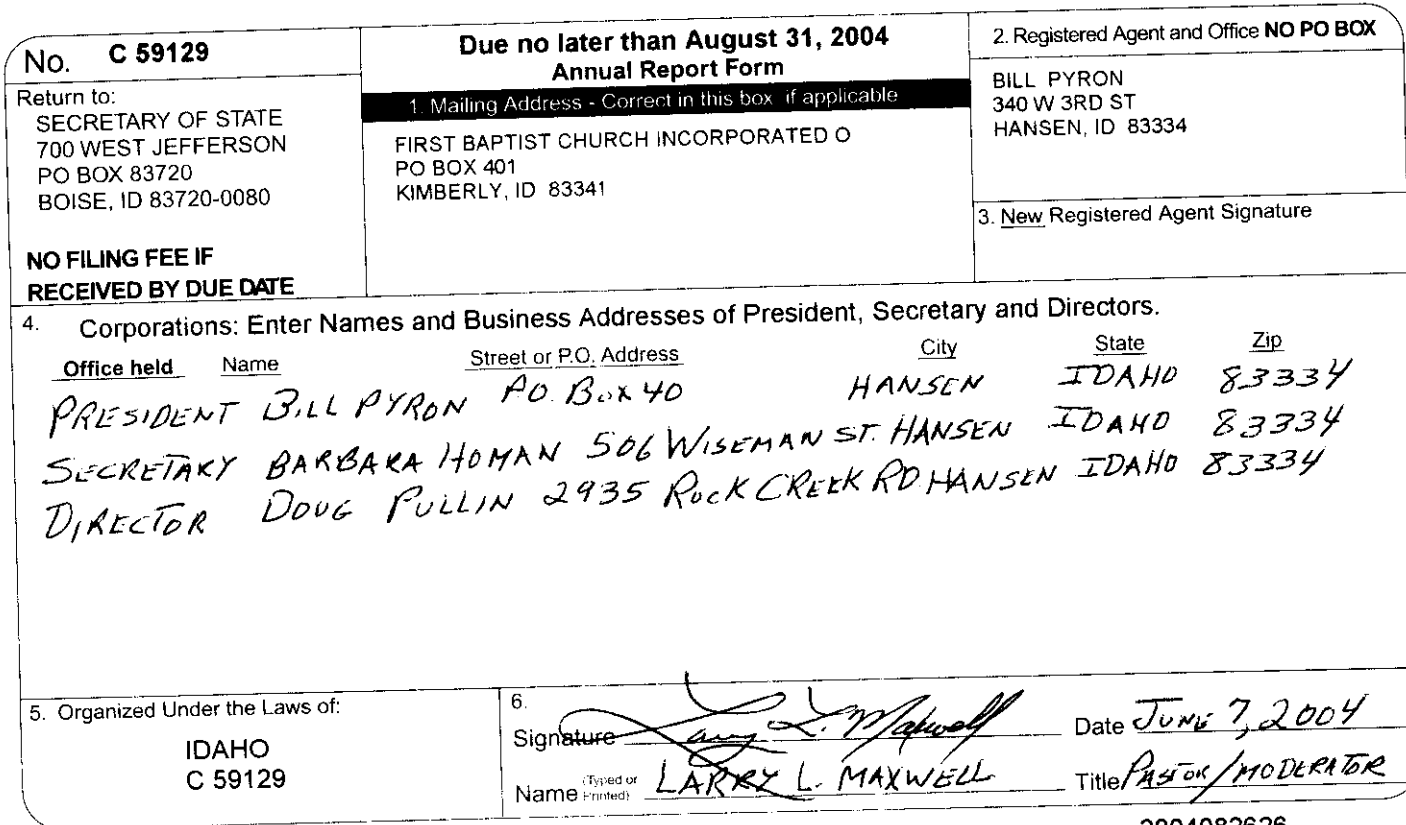 No. C 59129
Return to:
SECRETARY OF STATE
700 WEST JEFFERSON
PO BOX 83720
BOISE, ID 83720-0080
NO FILING FEE IF
RECEIVED BY DUE DATE
Due no later than August 31, 2004
Annual Report Form
1. Mailing Address - Correct in this box if applicable
FIRST BAPTIST CHURCH INCORPORATED O
PO BOX 401
KIMBERLY, ID 83341
2. Registered Agent and Office NO PO BOX
BILL PYRON
340 W 3RD ST
HANSEN, ID 83334
3. New Registered Agent Signature
4. Corporations: Enter Names and Business Addresses of President, Secretary and Directors.
Office held Name Street or P.O. Address City State Zip
PRESIDENT BILL PYRON PO. Box 40 HANSEN IDAHO 83334
SECRETARY BARBARA HOMAN 506 WISEMAN ST. HANSEN IDAHO 83334
DIRECTOR DOUG PULLIN 2935 ROCK CREEK RD HANSEN IDAHO 83334
5. Organized Under the Laws of:
IDAHO
C 59129
6.
Signature Larry L. Maxwell Date JUNE 7, 2004
Name (Typed or Printed) LARRY L. MAXWELL Title PASTOR/MODERATOR